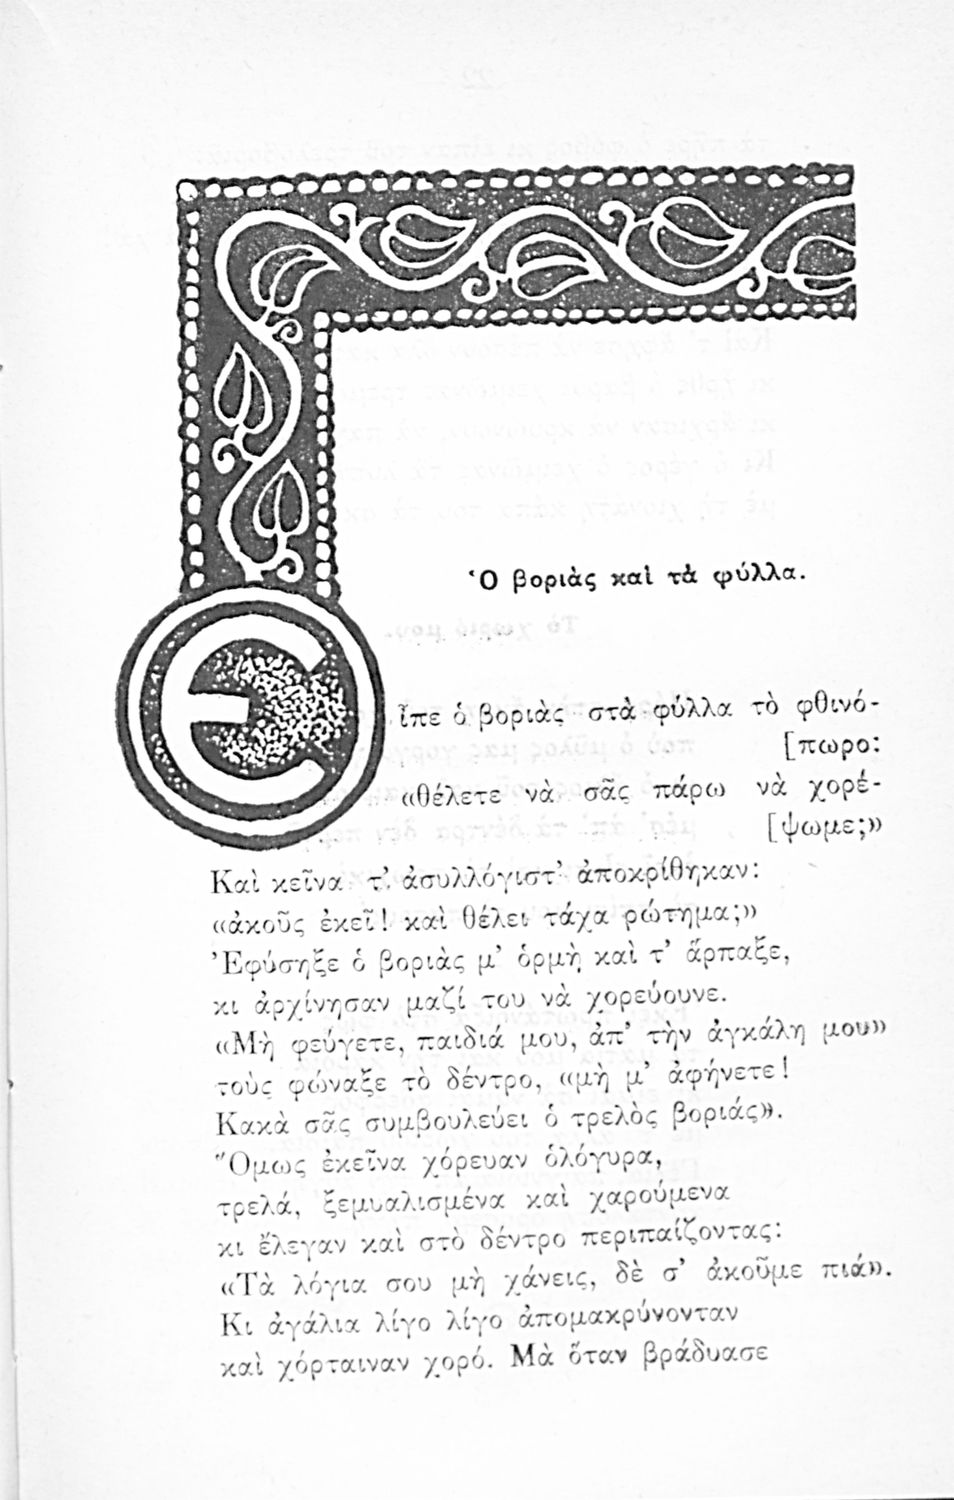 Ὁ βοριὰς καὶ τὰ φύλλα.
Εἶπε ὁ βοριὰς στὰ φύλλα τὸ φθινό-
[πωρο:
«θέλετε νὰ σᾶς πάρω νὰ χορέ-
[ψωμε;»
Καὶ κεῖνα τ' ἀσυλλόγιστ' ἀποκρίθηκαν:
«ἀκοῦς ἐκεῖ! καὶ θέλει τάχα ρώτημα;»
Ἐφύσηξε ὁ βοριὰς μ' ὁρμὴ καὶ τ' ἅρπαξε,
κι ἀρχίνησαν μαζί του νὰ χορεύουνε.
«Μὴ φεύγετε, παιδιά μου, ἀπ' τὴν ἀγκάλη μου»
τοὺς φώναξε τὸ δέντρο, «μὴ μ' ἀφήνετε!
Κακὰ σᾶς συμβουλεύει ὁ τρελὸς βοριάς».
Ὅμως ἐκεῖνα χόρευαν ὁλόγυρα,
τρελά, ξεμυαλισμένα καὶ χαρούμενα
κι ἔλεγαν καὶ στὸ δέντρο περιπαίζοντας:
«Τὰ λόγια σου μὴ χάνεις, δὲ σ' ἀκοῦμε πιά».
Κι ἀγάλια λίγο λίγο ἀπομακρύνονταν
καὶ χόρταιναν χορό. Μὰ ὅταν βράδυασε